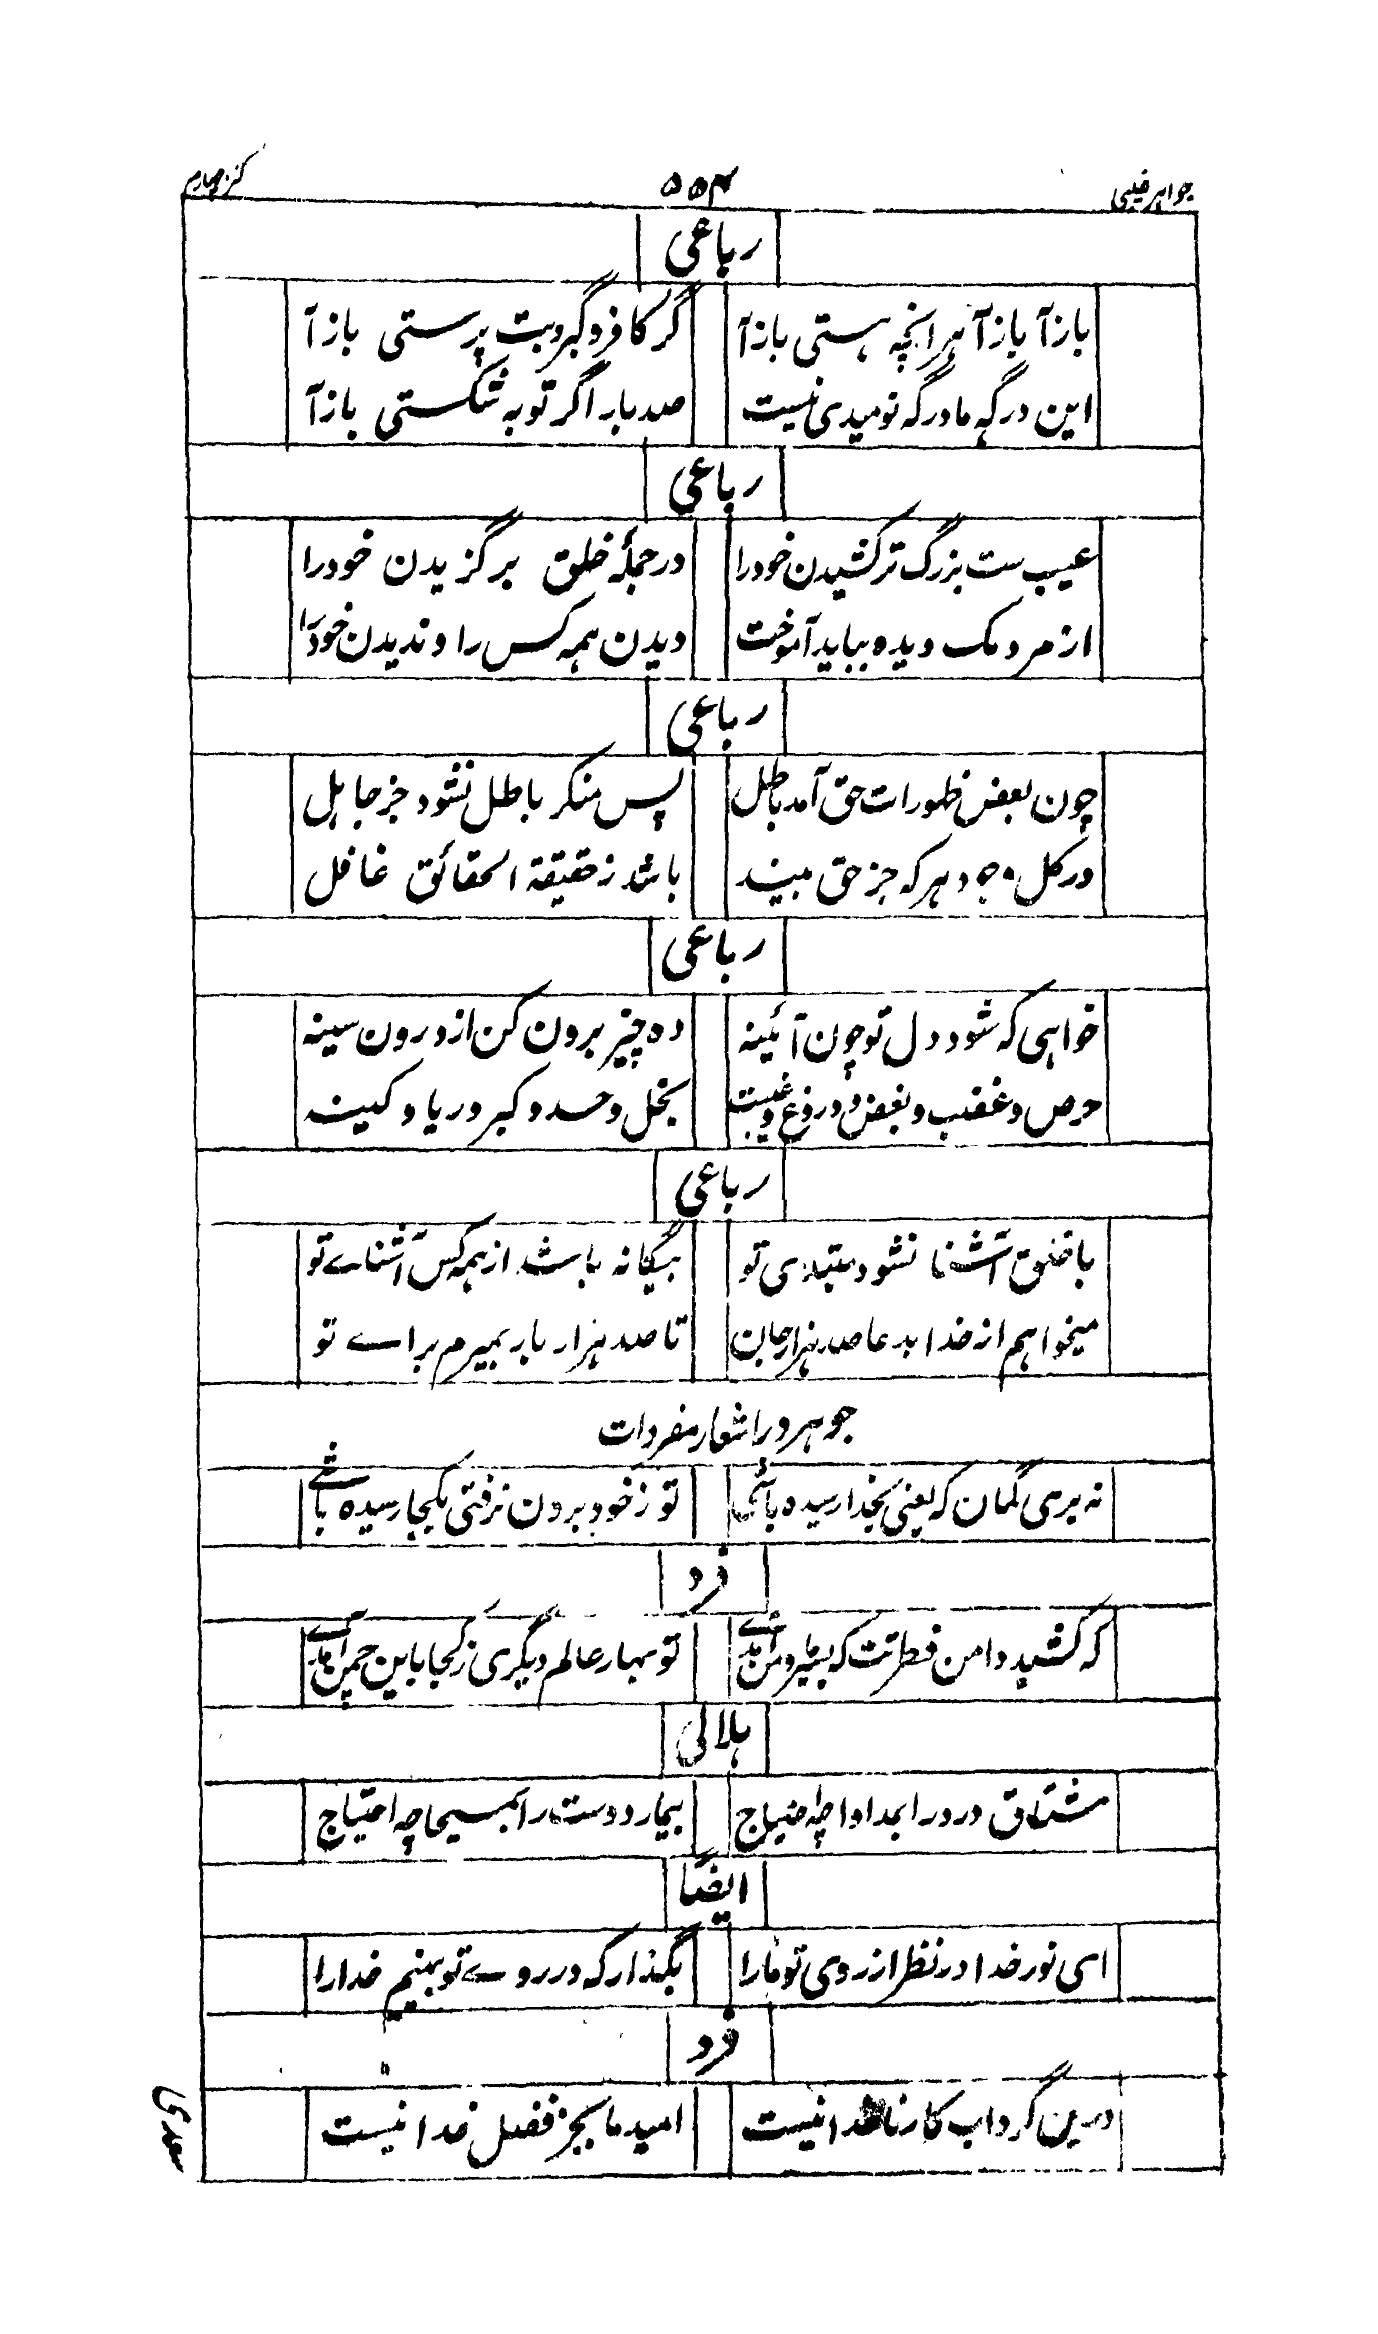 جواہر غیبی ۵۵۴ کنز چہارم
رباعی
باز آ باز آ ہر انچہ ہستی باز آ گر کافر و گبر و بت پرستی باز آ
این درگہ ما درگہ نومیدی نیست صد بار اگر توبہ شکستی باز آ
رباعی
عیب ست بزرگ ترکشیدن خود را در جملۂ خلق برگزیدن خود را
از مردمک دیدہ بباید آموخت دیدن ہمہ کس را و ندیدن خود را
رباعی
چون بعض ظہورات حق آمد باطل پس منکر باطل نشود جز جاہل
در کل وجود ہر کہ جز حق بیند باشد ز حقیقۃ الحقائق غافل
رباعی
خواہی کہ شود دل تو چون آئینہ دہ چیز برون کن از درون سینہ
حرص و غضب و بغض و دروغ و غیبت بخل و حسد و کبر و ریا و کینہ
رباعی
با خلق آشنا نشود مبتلای تو بیگانہ باشد از ہمہ کس آشناے تو
میخواہم از خدا بدعا صد ہزار جان تا صد ہزار بار بمیرم براے تو
جوہر در اشعار مفردات
نہ بری گمان کہ یعنی بخدا رسیدہ باشی تو ز خود برون نرفتی بکجا رسیدہ باشے
فرد
کہ کشید دامن فطرتت کہ بسیر ما و من آمدے تو بہار عالم دیگری ز کجا باین چمن آمدے
ہلالی
مشتاق درد را بمداوا چہ احتیاج بیمار دوست را بمسیحا چہ احتیاج
ایضًا
ای نور خدا در نظر از روی تو ما را بگذار کہ در روے تو بینیم خدا را
فرد
درین گرداب کار ناخدا نیست امید ما بجز فضل خدا نیست
سعدی